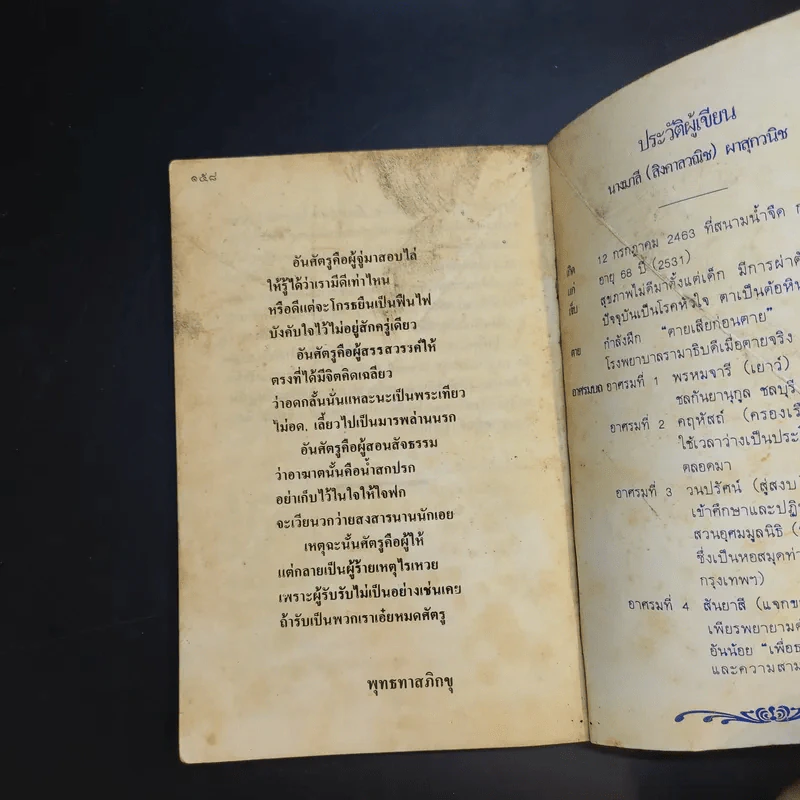 ๑๕๘
อันศัตรูคือผู้จู่มาสอบไล่
ให้รู้ได้ว่าเรามีดีเท่าไหน
หรือดีแต่จะโกรธยืนเป็นฟืนไฟ
บังคับใจไว้ไม่อยู่สักครู่เดียว
อันศัตรูคือผู้สรรสวรรค์ให้
ตรงที่ได้มีจิตคิดเฉลียว
ว่าอดกลั้นนั่นแหละนะเป็นพระเทียว
ไม่อด, เลี้ยวไปเป็นมารพล่านนรก
อันศัตรูคือผู้สอนสัจธรรม
ว่าอาฆาตนั้นคือน้ำสกปรก
อย่าเก็บไว้ในใจให้ใจฟก
จะเวียนวกว่ายสงสารนานนักเอย
เหตุฉะนั้นศัตรูคือผู้ให้
แต่กลายเป็นผู้ร้ายเหตุไรเหวย
เพราะผู้รับรับไม่เป็นอย่างเช่นเคย
ถ้ารับเป็นพวกเราเอ๋ยหมดศัตรู
พุทธทาสภิกขุ
ประวัติผู้เขียน
นางมาลี (สิงคาลวณิช) ผาสุกวนิช
เกิด 12 กรกฎาคม 2463 ที่สนามน้ำจืด
แก่ อายุ 68 ปี (2531)
เจ็บ สุขภาพไม่ดีมาตั้งแต่เด็ก มีการผ่าตั
ปัจจุบันเป็นโรคหัวใจ ตาเป็นต้อหิน
ตาย กำลังฝึก "ตายเสียก่อนตาย"
โรงพยาบาลรามาธิบดีเมื่อตายจริง
อาศรมบถ อาศรมที่ 1 พรหมจารี (เยาว์)
ชลกันยานุกูล ชลบุรี
อาศรมที่ 2 คฤหัสถ์ (ครองเรื
ใช้เวลาว่างเป็นประโ
ตลอดมา
อาศรมที่ 3 วนปรัศน์ (สู่สงบ)
เข้าศึกษาและปฏิ
สวนอุศมมูลนิธิ
ซึ่งเป็นหอสมุดท่า
กรุงเทพฯ)
อาศรมที่ 4 สันยาสี (แจกข
เพียรพยายาม
อันน้อย "เพื่อธ
และความสาม